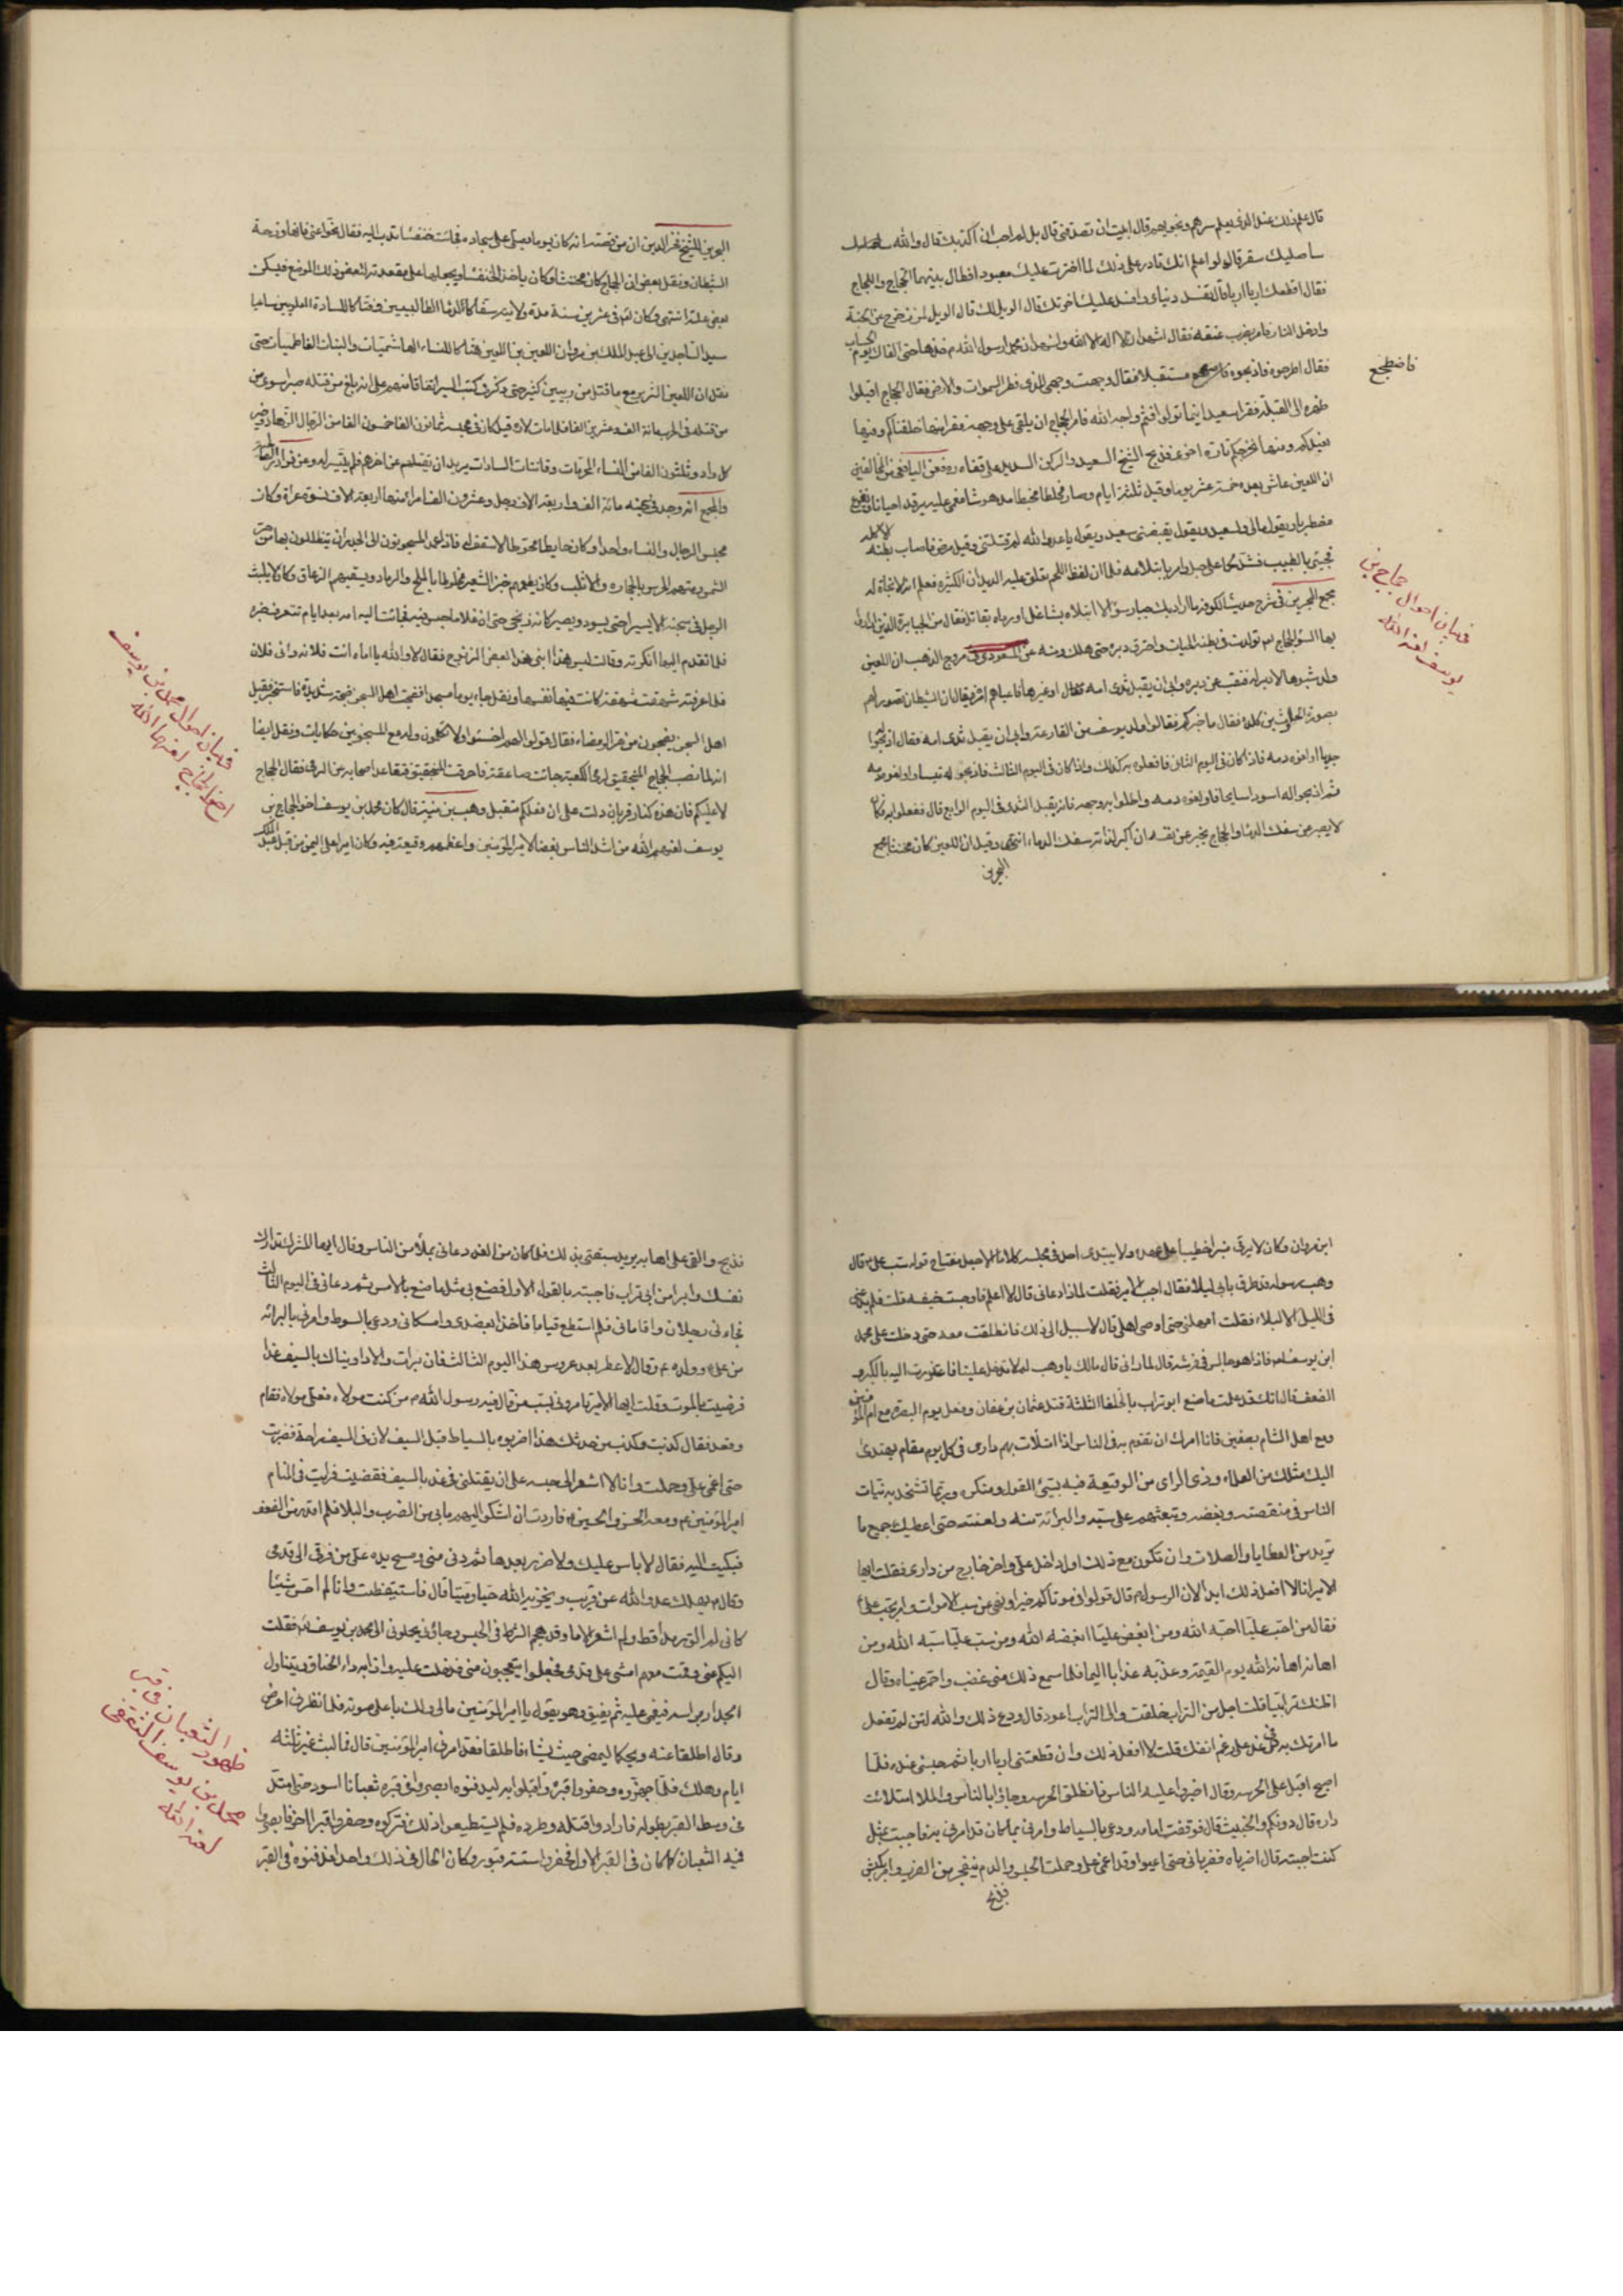 قال علم ذلك عند الذي يعلم سرهم ونجويهم قال ابيت ان تصدقني قال بل لم احب ان اكذبك قال والله
ساصليك سقر قال لو اعلم انك قادر على ذلك لما اخترت عليك معبودا فطال بينهما الحجاج واللجاج
فقال اقطعك اربا اربا قال تفسد دنياي وافسد عليك اخرتك قال الويل لك قال الويل لمن زحزح عن الجنة
وادخل النار فامر بضرب عنقه فقال اشهد ان لا اله الا الله واشهد ان محمدا رسول الله م خذها حتى القاك يوم الحساب
فقال اطرحوه فاذبحوه فاضطجع مستقبلا فقال وجهت وجهي للذي فطر السموات والارض فقال الحجاج اقبلوا
فاضطجع
ظهره الى القبلة فقرا سعيد اينما تولوا فثم وجه الله فامر الحجاج ان يلقى على وجهه فقرا منها خلقناكم وفيها
نعيدكم ومنها نخرجكم تارة اخرى فذبح الشيخ السعيد والركن السديد على قفاه وعن اليافعي من المخالفين
ان اللعين عاش بعده خمسة عشر يوما وقيل ثلثة ايام وصار مخلطا مخبطا مدهوشا مغمى عليه يرقد احيانا
مضطربا ويقول مالي ولسعيد ويقول يقبضني سعيد ويقول يا عدو الله لم قتلتني وقيل مرض فاصاب بطنه الاكله
في بيان احوال حجاج بن
يوسف لعنه الله
فجيئ بالطبيب فشد لحما على حبل وامر بابتلاعه فلما ان لفظ اللحم تعلق عليه الديدان الكثيره فعلم انه لا نجاة له
مجمع البحرين في شرح حديث الكوفة ما اراد بك جبار سوءا الا ابتلاه بشاغل او رماه بقاتل فقال من الجبابرة الذين ارادوا
بها السوء الحجاج بعد تولدت في بطنه الحيات واحترق دبره حتى هلك ومنه عن المسعودي في مروج الذهب ان اللعين
ولد مشوها لا دبر له فنقب عن دبره وابى ان يقبل ثدى امه او غيرها فاعياهم امره يقال ان الشيطان تصور لهم
بصورة الحارث بن كلدة فقال ما خبركم فقالوا ولد يوسف من القارعة وابى ان يقبل ثدى امه فقال اذبحوا
جديا اولغوه دمه فاذا كان في اليوم الثاني فافعلوا به كذلك واذا كان في اليوم الثالث فاذبحوا له تيسا واولغوه دمه
ثم اذبحوا له اسود سالخا واولغوه دمه واطلوا به وجهه فانه يقبل الثدى في اليوم الرابع قال ففعلوا به فكان
لا يصبر عن سفك الدماء والحجاج يخبر عن نفسه ان اكبر لذاته سفك الدماء انتهى وقيل ان اللعين كان مخنثا مجمع
البحرين
البحرين للشيخ فخر الدين ان من قصته انه كان يوما يصلى على سجاده فجائت خنفساء تدب اليه فقال نحوا عني فانها وزحة
الشيطان ونقل بعض ان الحجاج كان مخنثا وكان ياخذ الخنفساء ويجعلها على مقعدته لتعض ذلك الموضع فيسكن
بعض علته انتهى وكان له في عشرين سنة مدة ولايته سفاكا لدماء الطالبيين وفتاكا للسادة العلويين ساعيا
سيد الساجدين الى عبد الملك بن مروان اللعين بن اللعين هتاكا للنساء الهاشميات والبنات الفاطميات حتى
نقل ان اللعين
من قتله في الحرب مائة الف وعشرين الفا فلما مات لاره قيل كان في محبسه ثمانون الفا خمسون الفا من الرجال
وثلثون الفا من النساء الحريات وقانتات السادات يريد ان يقتلهم عن اخرهم فلم يتيسر له وعن
والمجمع انه وجد في سجنه مائة الف واربعة الاف رجل وعشرون الف امراة منها اربعة الاف نسوة عراة وكان
محبس الرجال والنساء واحدا وكان حايطا محوطا لا سقف له فاذا عمد المسجونون الى الجدران يتظللون بها من حر
الشمس رمتهم الحرس بالحجارة والاثلب وكان يطعمهم خبز الشعير مخلوطا بالملح والرماد ويسقيهم الزعاق وكان لا يلبث
الرجل في سجنه الا يسيرا حتى يسود ويصير كانه زنجي حتى ان غلاما حبس فيه فجائت اليه امه بعد ايام تتعرف خبره
فلما تقدم اليها انكرته وقالت ليس هذا ابني هذا بعض الزنوج فقال لا والله يا اماه انت فلانه وانى فلان
في بيان احوال محمد بن يوسف
اخو الحجاج لعنهما الله
فلما عرفته شهقت شهقة كانت فيها نفسها ونقل
اهل السجن يضجون من حر الرمضاء فقال قولوا لهم اخسئوا ولا تكلمون وله مع المسجونين حكايات ونقل ايضا
انه لما نصب الحجاج المنجنيق لرمى الكعبة جائت صاعقة فاحرقت المنجنيق فتقاعد اصحابه عن الرمى فقال الحجاج
لا عليكم فان هذه كنار قربان دلت على ان فعلكم متقبل وهب بن منبه قال كان محمد بن يوسف اخو الحجاج بن
يوسف لعنهم الله من اشد الناس بغضا لامير المؤمنين واعظمهم وقيعة فيه وكان اميرا على اليمن من قبل عبد الملك
ابن مروان وكان لا يرقى منبرا خطيبا ولا يبتدى احد في مجلسه كلاما الا جعل مفتاح قوله سب على م قال
وهب رسوله فطرق بابي ليلا فقال اجب الامير فقلت لماذا دعاني قال لا اعلم فاوجست خيفه
في الليل الا لبلاء فقلت امهلني حتى اوصى اهلي قال لا سبيل الى ذلك فانطلقت معه حتى دخلت على محمد
ابن يوسف فاذا هو جالس في فرشه قال لما راني قال مالك يا وهب لم لا تدخل علينا فاعتذرت اليه بالكبر و
الضعف قال انك قد علمت ما صنع ابو تراب بالخلفاء الثلثة قتل عثمان بن عفان وفعل يوم البصرة مع ام المؤمنين
ومع اهل الشام بصفين فانا امرك ان تقوم به في الناس اذا امتلات بهم دارى في كل يوم مقام يهتدى
اليك مثلك من العلماء وذى الراى من الوقيعة فيه بسيئ القول ومنكره وبما تشتد به نيات
الناس في منقصته وبغضه وتبعثهم على سبه والبرائة منه ولعنته حتى اعطيك جميع ما
تريد من العطايا والصلات وان تكون مع ذلك اول داخل على واخر خارج من دارى فقلت ايها
الامير انا لا افعل ذلك ابدا لان الرسول م قال قولوا في موتاكم خيرا ونهى عن سب الاموات
فقال من احب عليا احبه الله ومن ابغض عليا ابغضه الله ومن سب عليا سبه الله ومن
اهانه اهانه الله يوم القيمة وعذبه عذابا اليما فلما سمع ذلك منى غضب واحمر عيناه وقال
اظنك ترابيا قلت اجل من التراب خلقت والى التراب اعود قال ودع ذلك والله لئن لم تفعل
ما امرتك به في غد على رغم انفك قلت لا افعل ذلك وان قطعتنى اربا اربا ثم حبسنى عنده فلما
اصبح اقبل على الحرسه وقال اضربوا عليه الناس فانطلق الحرسه وجاؤا بالناس والملا امتلائت
داره قال دونكم والخبيث قال فوقفت امامه ودعى بالسياط وامرنى بما كان قد امرنى به فاجبت بمثل
كنت اجبته قال اضرباه فضربانى حتى اعيوا وقد اغمى على وحملت الى الحبس والدم ينفجر من الضرب وامر بكبش
فذبح
فذبح والقى على اهابه يريد سفعى بذلك فلما كان من الغد دعانى بملاء من الناس وقال ايها المترك تدارك
نفسك وابرا من ابي تراب فاجبته بالقول الاول فصنع بي مثل ما صنع بالامس ثم دعانى في اليوم الثالث
فجاء نى رجلان واقامانى فلم استطع قياما فاخذا بعضدى وامسكانى ودعى بالسوط وامرنى بالبرائه
من على وولده م وقال لا عطر بعد عروس هذا اليوم الثالث فان تبرات والا داويناك بالسيف غدا
فرضيت بالموت وقلت ايها الامير تامرونى بسب من قال فيه رسول الله م من كنت مولاه فعلى مولاه فقام
وقعد فقال كذبت وكذب من حدثك هذا اضربوه بالسياط قبل السيف لان في السيف راحة فضربت
حتى اغمى على وحملت وانا لا اشعر الى محبسه على ان يقتلنى في غد بالسيف فقضيت فرايت في المنام
امير المؤمنين م ومعه الحسن والحسين م فاردت ان اشكو اليهم ما بي من الضرب والبلاء فلم اقدر من الضعف
فبكيت اليه فقال لا باس عليك ولا ضرر بعدها ثم دنى منى ومسح يده على من فرقى الى قدمى
وقال م يهلك عدو الله عن قريب ويخزيه الله حيا وميتا قال فاستيقظت وانا لم احس شيئا
كانى لم الق بهذا قط ولم اشعر الا وقد هجم الشرط في الحبس وجاؤا يحملونى الى محمد بن يوسف فقلت
اليكم عنى وقمت معهم امشى على قدمى فجعلوا يتعجبون منى فدخلت عليه واذا به داء الخناق يتناول
الجدار من اسه فيغمى عليه ثم يفيق وهو يقول يا امير المؤمنين مالى ولك باعلى صوته فلما نظرنى اعرض
وقال اطلقا عنه ويحكما ليمضى حيث يشاء فاطلقا فقد امرنى امير المؤمنين قال فما لبث غير ثلثه
ظهور الثعبان في قبر
محمد بن يوسف الثقفى
لعنه الله
ايام وهلك فلما جهزوه وحفروا قبره واقبلوا به ليدفنوه ابصروا في قبره ثعبانا اسود حتى امتد
في وسط القبر بطوله فارادوا قتله وطرده فلم يستطيعوا ذلك فتركوه وحفروا قبرا اخر فابصروا
فيه الثعبان كما كان في القبر الاول فحفروا ستة قبور وكان الحال في ذلك واحد فدفنوه في القبر